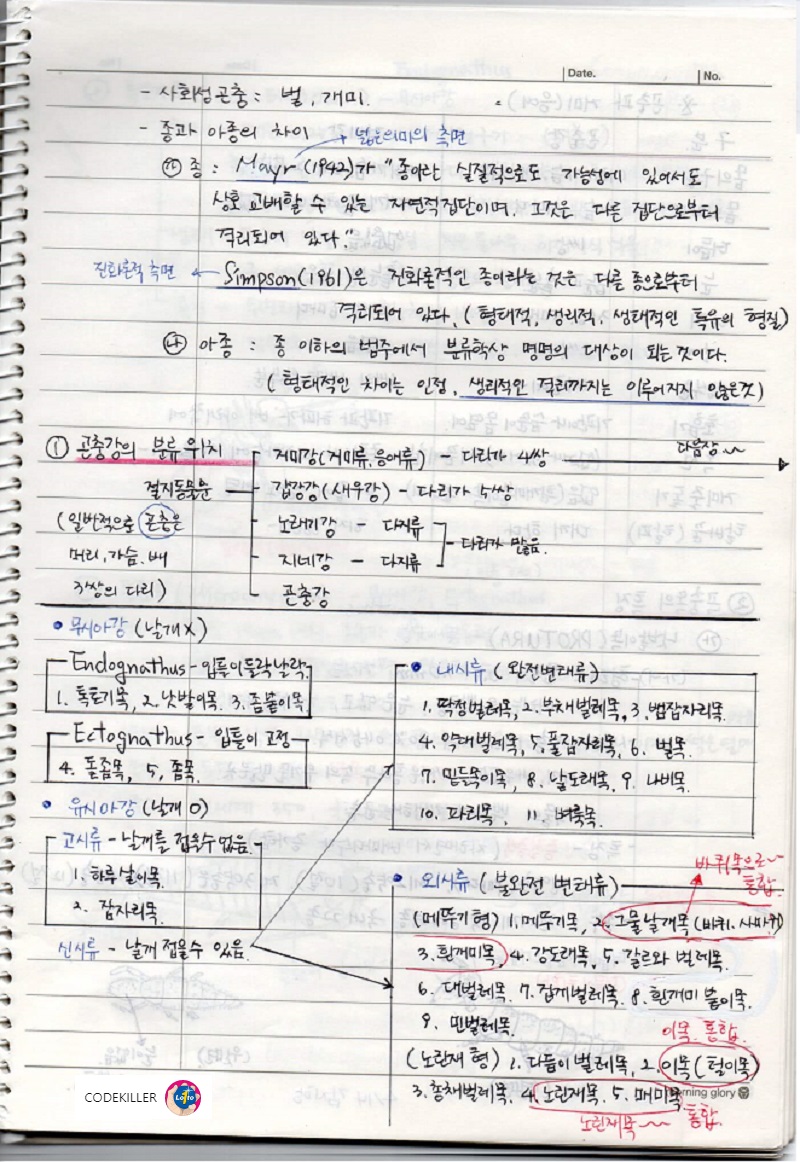 Date.
No.
- 사회성곤충 : 벌, 개미.
- 종과 아종의 차이
넓은의미의 측면
㉮ 종 : Mayr(1942)가 "종이란 실질적으로도 가능성에 있어서도
상호교배할 수 있는 자연적집단이며, 그것은 다른 집단으로부터
격리되어 있다."
진화론적 측면
Simpson(1961)은 진화론적인 종이라는 것은 다른 종으로부터
격리되어 있다. (형태적, 생리적, 생태적인 특유의 형질)
㉯ 아종 : 종 이하의 범주에서 분류학상 명명의 대상이 되는것이다.
(형태적인 차이는 인정, 생리적인 격리까지는 이루어지지 않은것)
① 곤충강의 분류위치
거미강(거미류,응애류) - 다리가 4쌍
다음장
절지동물문
갑각강(새우강) - 다리가 5쌍
(일반적으로 곤충은
노래기강 - 다지류
다리가 많음.
머리, 가슴, 배
지네강 - 다지류
3쌍의 다리)
곤충강
• 무시아강 (날개X)
Endognathus - 입틀이들락날락.
1. 톡토기목, 2. 낫발이목. 3. 좀붙이목.
Ectognathus - 입틀이 고정
4. 돌좀목, 5. 좀목.
• 유시아강 (날개 O)
고시류 - 날개를 접을수 없음.
1. 하루살이목.
2. 잠자리목.
신시류 - 날개 접을수 있음.
• 내시류 (완전변태류)
1. 딱정벌레목, 2. 부채벌레목, 3. 뱀잠자리목.
4. 약대벌레목, 5. 풀잠자리목, 6. 벌목.
7. 밑들목이목, 8. 날도래목, 9. 나비목.
10. 파리목, 11. 벼룩목.
바퀴목으로~
통합.
• 외시류 (불완전 변태류)
(메뚜기형) 1. 메뚜기목, 2. 그물날개목(바퀴.사마귀)
3. 흰개미목, 4. 강도래목, 5. 갈르와 벌레목.
6. 대벌레목. 7. 집게벌레목. 8. 흰개미 붙이목.
9. 민벌레목.
이목. 통합.
(노린재 형) 1. 다듬이벌레목, 2. 이목(털이목)
3. 총채벌레목. 4. 노린재목. 5. 매미목.
morning glory
노린재목 ~ 통합.
CODEKILLER
Lotto